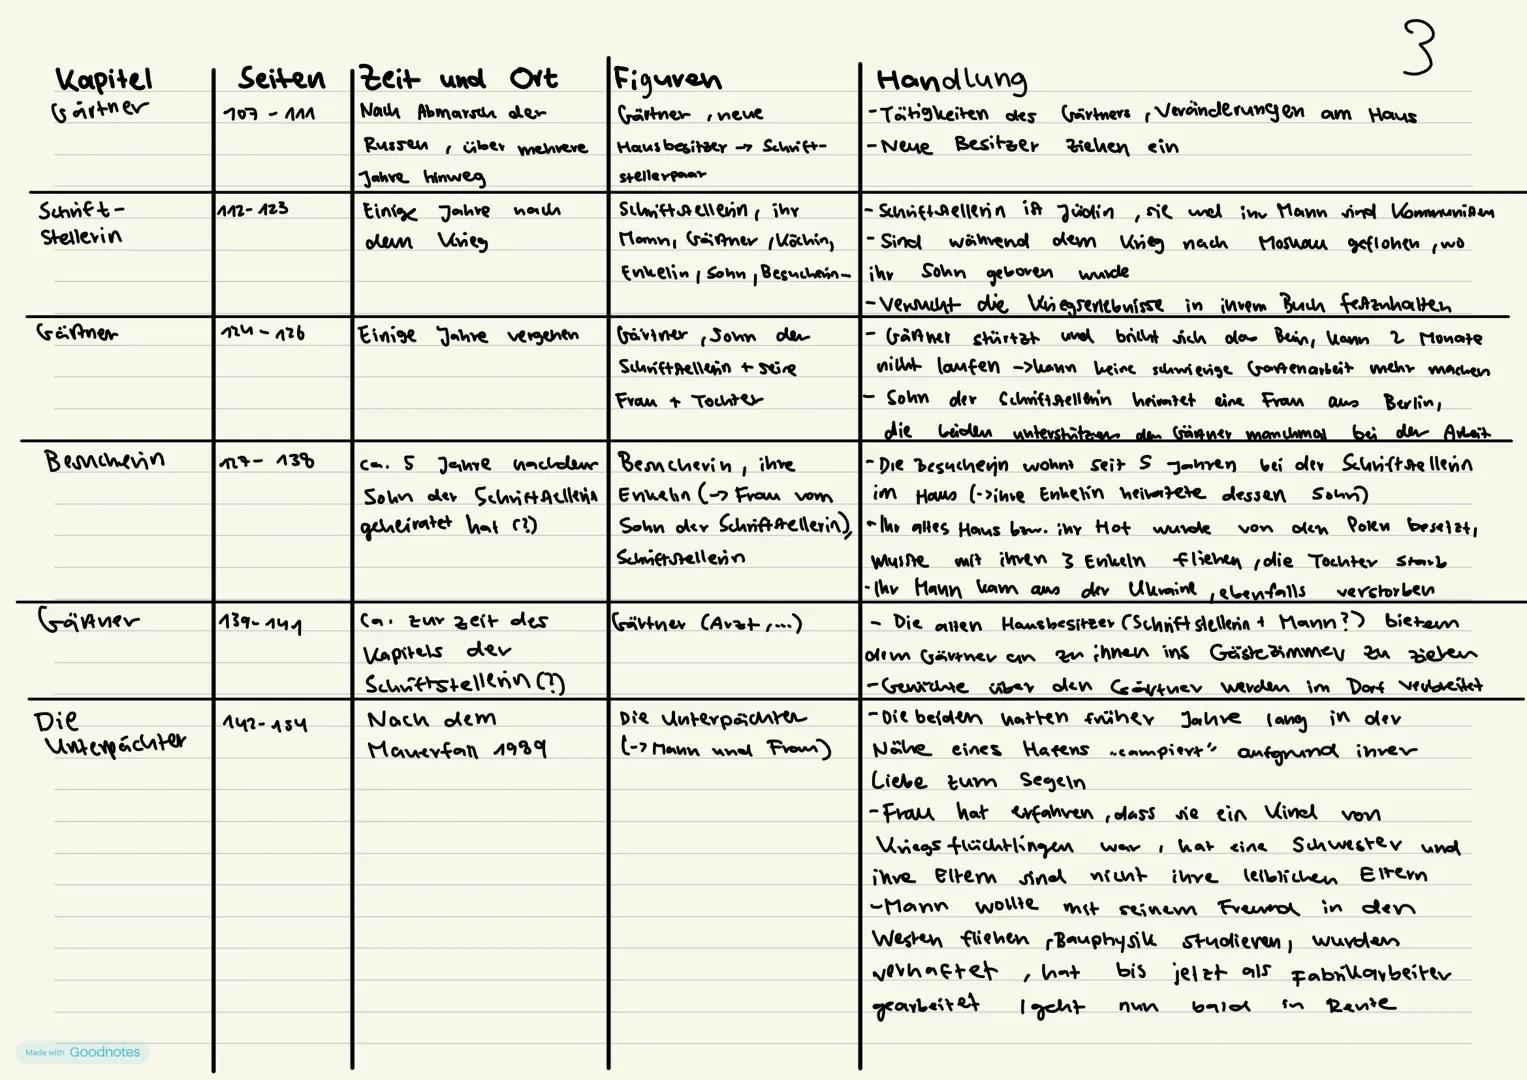 3
Kapitel | Seiten | Zeit und Ort | Figuren | Handlung
Gärtner
107 - 111
Nach Abmarsch der
Russen, über mehrere
Jahre hinweg
Gärtner, neue
Hausbesitzer → Schrift-
stellerpaar
- Tätigkeiten des Gärtners, Veränderungen am Haus
- Neue Besitzer ziehen ein
Schrift-
stellerin
112- 123
Einige Jahre nach
dem Krieg
Schriftstellerin, ihr
Mann, Gärtner, Köchin,
Enkelin, Sohn, Besucherin-
- Schriftstellerin ist Jüdin, sie und ihr Mann sind Kommunisten
- Sind während dem Krieg nach Moskau geflohen, wo
ihr Sohn geboren wurde
- Versucht die Kriegserlebnisse in ihrem Buch festzuhalten
Gärtner
124 - 126
Einige Jahre vergehen
Gärtner, Sohn der
Schriftstellerin + seine
Frau + Tochter
- Gärtner stürtzt und bricht sich das Bein, kann 2 Monate
nicht laufen -> kann keine schwierige Gartenarbeit mehr machen
- Sohn der Schriftstellerin heiratet eine Frau aus Berlin,
die beiden unterstützen den Gärtner manchmal bei der Arbeit
Besucherin
127- 138
ca. 5 Jahre nachdem
Sohn der Schriftstellerin
geheiratet hat (?)
Besucherin, ihre
Enkelin (-> Frau vom
Sohn der Schriftstellerin),
Schriftstellerin
- Die Besucherin wohnt seit 5 Jahren bei der Schriftstellerin
im Haus (->ihre Enkelin heiratete dessen Sohn)
- Ihr altes Haus bzw. ihr Hof wurde von den Polen besetzt,
musste mit ihren 3 Enkeln fliehen, die Tochter starb
- Ihr Mann kam aus der Ukraine, ebenfalls verstorben
Gärtner
139- 141
ca. zur Zeit des
Kapitels der
Schriftstellerin (?)
Gärtner (Arzt, ...)
- Die alten Hausbesitzer (Schriftstellerin + Mann?) bieten
dem Gärtner an zu ihnen ins Gästezimmer zu ziehen
- Gerüchte über den Gärtner werden im Dorf verbreitet
Die
Unterpächter
142- 154
Nach dem
Mauerfall 1989
Die Unterpächter
(-> Mann und Frau)
- Die beiden hatten früher Jahre lang in der
Nähe eines Hafens „campiert" aufgrund ihrer
Liebe zum Segeln
- Frau hat erfahren, dass sie ein Kind von
Kriegsflüchtlingen war, hat eine Schwester und
ihre Eltern sind nicht ihre leiblichen Eltern
- Mann wollte mit seinem Freund in den
Westen fliehen, Bauphysik studieren, wurden
verhaftet, hat bis jetzt als Fabrikarbeiter
gearbeitet, geht nun bald in Rente
Made with Goodnotes